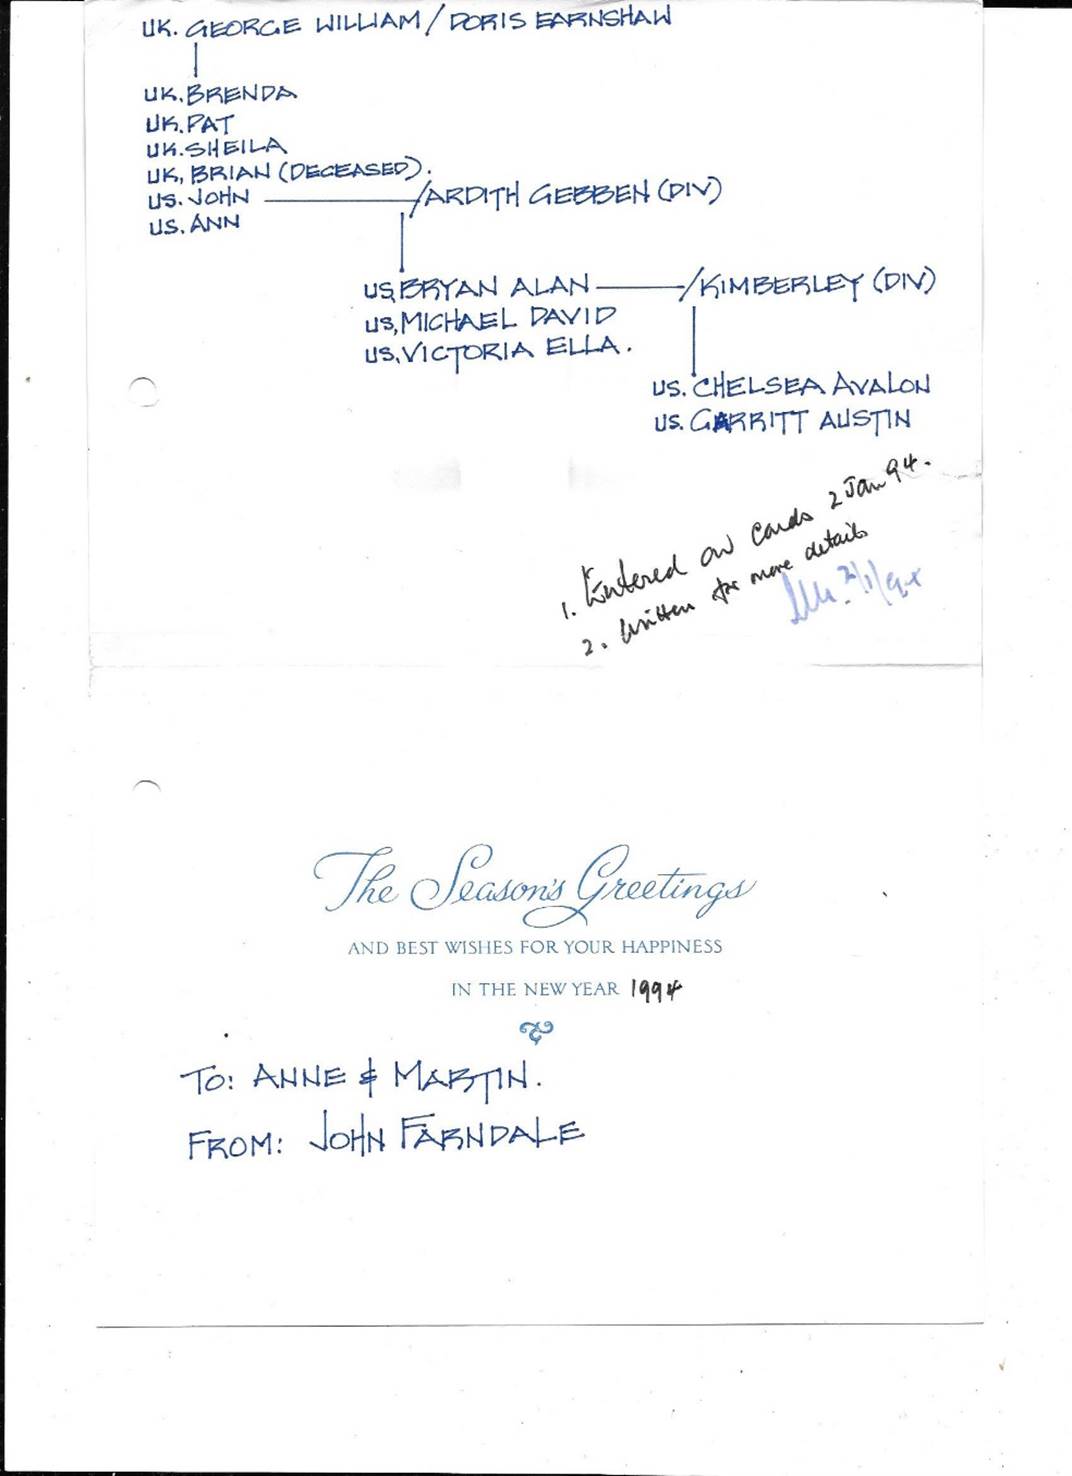 UK. GEORGE WILLIAM / DORIS EARNSHAW
UK. BRENDA
UK. PAT
UK. SHEILA
UK, BRIAN (DECEASED).
US. JOHN /ARDITH GEBBEN (DIV)
US. ANN
US, BRYAN ALAN /KIMBERLEY (DIV)
US, MICHAEL DAVID
US. VICTORIA ELLA.
US. CHELSEA AVALON
US. GARRITT AUSTIN
1. Entered on Cards 2 Jan 94.
2. Written for more details
2/1/94
The Season's Greetings
AND BEST WISHES FOR YOUR HAPPINESS
IN THE NEW YEAR 1994
TO: ANNE & MARTIN.
FROM: JOHN FARNDALE